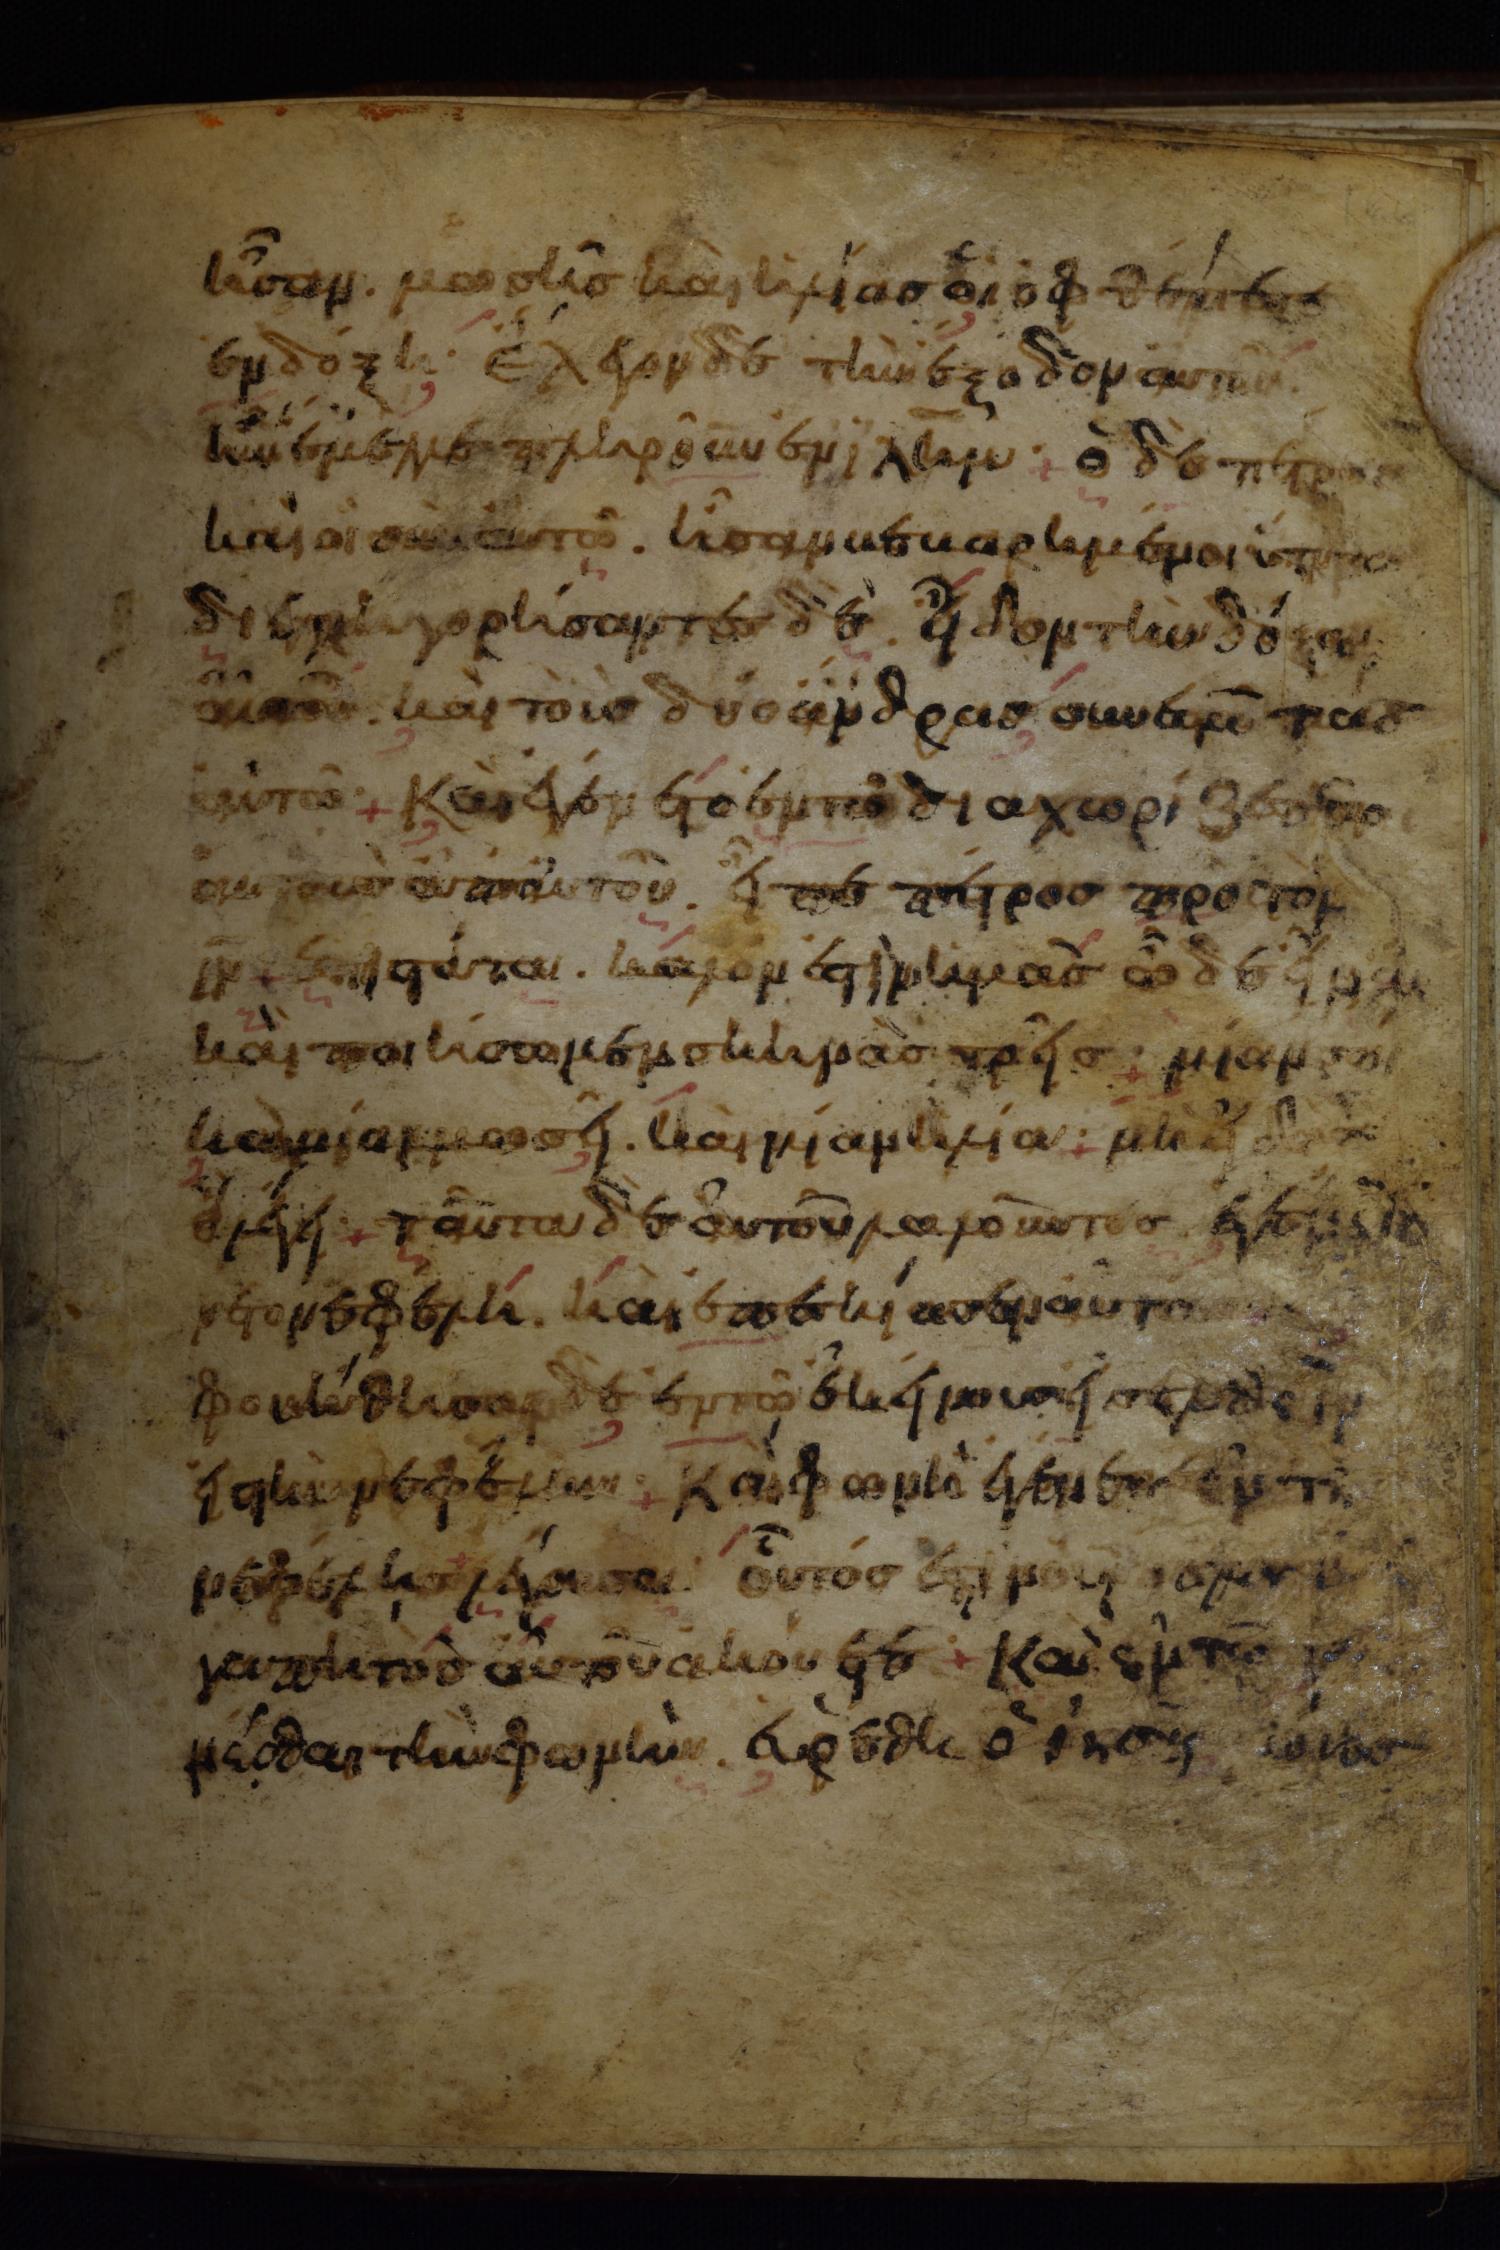 ἦσαν. μωσῆσ καὶ ἠλίασ οἳ ὀφθέντεσ
ἐν δόξη· ἔλεγον δὲ τὴν ἔξοδον αὐτοῦ.
ἣν ἔμελλε πληροῦν ἐν ἱλὴμ· + ὁ δὲ πέτροσ
καὶ οἱ σὺν αὐτῶ. ἦσαν βεβαρημένοι ὕπνω
διαγρηγορήσαντεσ δὲ. εἶδον τὴν δόξαν
αὐτοῦ. καὶ τοὺσ δύο ἄνδρασ συνεστῶτασ
αὐτῶ· + Καὶ ἐγένετο ἐν τῶ διαχωρίζεσθαι
αὐτοὺσ ἀπ αὐτοῦ. εἶπε πέτροσ πρὸσ τὸν
ιν + ἐπιστάτα. καλόν ἐστιν ἡμᾶσ ὧδε εἶναι
καὶ ποιήσωμεν σκηνὰσ τρεῖσ· + μίαν σοὶ
καὶ μίαν μωσεῖ. καὶ μίαν ἠλία· + μὴ εἰδὼσ
ὃ λέγει· + ταῦτα δὲ αὐτοῦ λαλοῦντοσ ἐγένετο
νεφέλη. καὶ ἐπεσκίασεν αὐτοὺσ
ἐφοβήθησαν δὲ ἐν τῶ ἐκείνουσ εἰσελθεῖν
εἰσ τὴν νεφέλην· + Καὶ φωνὴ ἐγένετο ἐκ τῆσ
νεφέλησ λέγουσα· οὗτόσ ἐστιν ὁ υἱόσ μου ὁ
ἀγαπητὸσ αὐτοῦ ἀκούετε· + Καὶ ἐν τῶ γε
νέσθαι τὴν φωνὴν. εὑρέθη ὁ ἰησοῦς μόνοσ